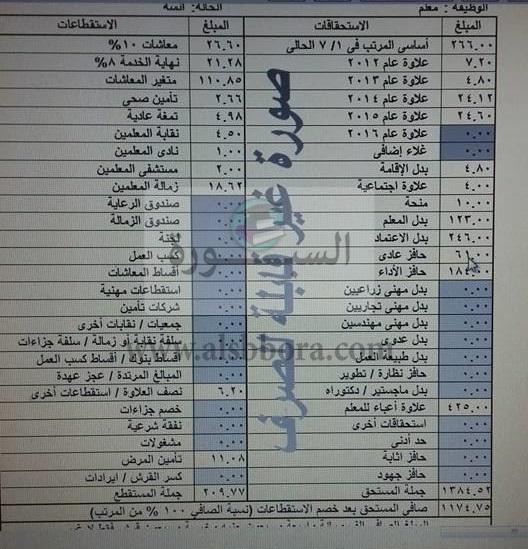 الوظيفة: معلم الحالة: آنسة
المبلغ الاستحقاقات المبلغ الاستقطاعات
٢٦٦.٠٠ أساسى المرتب فى ١/ ٧ الحالى ٢٦.٦٠ معاشات ١٠%
٧.٢٠ علاوة عام ٢٠١٢ ٢١.٢٨ نهاية الخدمة ٨%
٤.٨٠ علاوة عام ٢٠١٣ ١١٠.٨٥ متغير المعاشات
٢٤.١٢ علاوة عام ٢٠١٤ ٢.٦٦ تأمين صحى
٢٤.٦٠ علاوة عام ٢٠١٥ ٤.٩٨ تمغة عادية
٠.٠٠ علاوة عام ٢٠١٦ ٤.٥٠ نقابة المعلمين
٠.٠٠ غلاء إضافى ١.٠٠ نادى المعلمين
٤.٨٠ بدل الإقامة ٢.٠٠ مستشفى المعلمين
٤.٠٠ علاوة اجتماعية ١٨.٦٢ زمالة المعلمين
١٠.٠٠ منحة ٠.٠٠ صندوق الرعاية
١٢٣.٠٠ بدل المعلم ٠.٠٠ صندوق الزمالة
٢٤٦.٠٠ بدل الاعتماد ٠.٠٠ لجنة
حافز عادى ٠.٠٠ كسب العمل
حافز الأداء ٠.٠٠ أقساط المعاشات
٠.٠٠ بدل مهنى زراعيين ٠.٠٠ استقطاعات مهنية
٠.٠٠ بدل مهنى تجاريين ٠.٠٠ شركات تأمين
٠.٠٠ بدل مهنى مهندسين ٠.٠٠ جمعيات / نقابات أخرى
٠.٠٠ بدل عدوى ٠.٠٠ سلفة نقابة أو زمالة / سلفة جزاءات
٠.٠٠ بدل طبيعة العمل ٠.٠٠ أقساط بنوك / أقساط كسب العمل
٠.٠٠ حافز نظارة / تطوير ٠.٠٠ المبالغ المرتدة / عجز عهدة
٠.٠٠ بدل ماجستير / دكتوراه ٦.٢٠ نصف العلاوة / استقطاعات أخرى
٤٢٥.٠٠ علاوة أعباء للمعلم ٠.٠٠ خصم جزاءات
٠.٠٠ استحقاقات أخرى ٠.٠٠ نفقة شرعية
٠.٠٠ حد أدنى ٠.٠٠ مشغولات
٠.٠٠ حافز اثابة ١١.٠٨ تأمين المرض
٠.٠٠ حافز جهود ٠.٠٠ كسر القرش / ايرادات
١٣٨٤.٥٢ جملة المستحق ٢٠٩.٧٧ جملة المستقطع
١١٧٤.٧٥ صافى المستحق بعد خصم الاستقطاعات (نسبة الصافي ١٠٠ % من المرتب)
صورة غير قابلة للصرف
السبورة
www.alsbbora.com